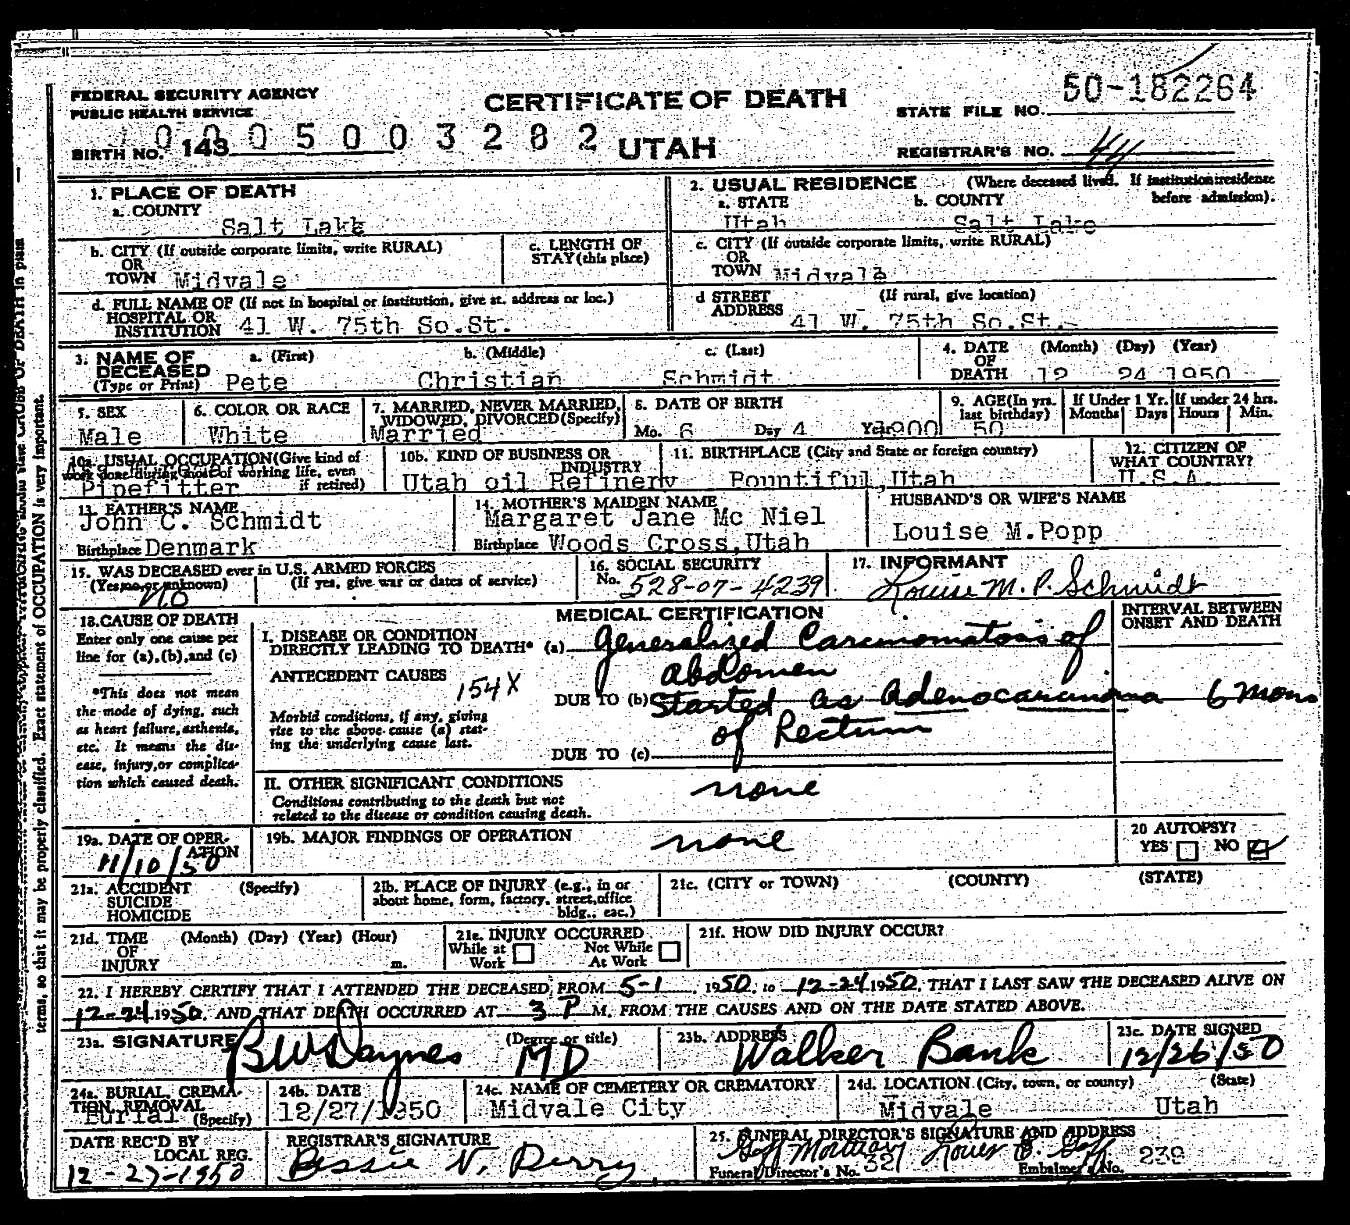 FEDERAL SECURITY AGENCY
PUBLIC HEALTH SERVICE
CERTIFICATE OF DEATH
UTAH
STATE FILE NO. 50-182264
BIRTH NO. 143
0005003282
REGISTRAR'S NO. 44
1. PLACE OF DEATH
a. COUNTY Salt Lake
2. USUAL RESIDENCE (Where deceased lived. If institution: residence before admission).
a. STATE Utah b. COUNTY Salt Lake
b. CITY (If outside corporate limits, write RURAL) OR TOWN Midvale
c. LENGTH OF STAY (this place)
c. CITY (If outside corporate limits, write RURAL) OR TOWN Midvale
d. FULL NAME OF (If not in hospital or institution, give st. address or loc.) HOSPITAL OR INSTITUTION 41 W. 75th So.St.
d STREET ADDRESS (If rural, give location) 41 W. 75th So.St.
3. NAME OF DECEASED (Type or Print)
a. (First) Pete b. (Middle) Christian c. (Last) Schmidt
4. DATE OF DEATH (Month) (Day) (Year) 12 24 1950
5. SEX Male
6. COLOR OR RACE White
7. MARRIED, NEVER MARRIED, WIDOWED, DIVORCED (Specify) Married
8. DATE OF BIRTH Mo. 6 Day 4 Yr. 1900
9. AGE (In yrs. last birthday) 50
If Under 1 Yr. Months Days
If under 24 hrs. Hours Min.
10a. USUAL OCCUPATION (Give kind of work done during most of working life, even if retired) Pipefitter
10b. KIND OF BUSINESS OR INDUSTRY Utah oil Refinery
11. BIRTHPLACE (City and State or foreign country) Bountiful, Utah
12. CITIZEN OF WHAT COUNTRY? U.S.A.
13. FATHER'S NAME John C. Schmidt
Birthplace Denmark
14. MOTHER'S MAIDEN NAME Margaret Jane Mc Niel
Birthplace Woods Cross, Utah
HUSBAND'S OR WIFE'S NAME
Louise M. Popp
15. WAS DECEASED ever in U.S. ARMED FORCES
(Yes, no, or unknown) (If yes, give war or dates of service)
No
16. SOCIAL SECURITY No. 528-07-4239
17. INFORMANT Louise M. P. Schmidt
18. CAUSE OF DEATH
Enter only one cause per line for (a), (b), and (c)
*This does not mean the mode of dying, such as heart failure, asthenia, etc. It means the disease, injury, or complication which caused death.
MEDICAL CERTIFICATION
INTERVAL BETWEEN ONSET AND DEATH
I. DISEASE OR CONDITION DIRECTLY LEADING TO DEATH* (a) Generalized Carcinomatosis of abdomen
ANTECEDENT CAUSES 154X
Morbid conditions, if any, giving rise to the above cause (a) stating the underlying cause last.
DUE TO (b) Started as Adenocarcinoma of Rectum 6 mons
DUE TO (c)
II. OTHER SIGNIFICANT CONDITIONS
Conditions contributing to the death but not related to the disease or condition causing death.
none
19a. DATE OF OPERATION 11/10/50
19b. MAJOR FINDINGS OF OPERATION none
20 AUTOPSY?
YES NO
21a. ACCIDENT SUICIDE HOMICIDE (Specify)
21b. PLACE OF INJURY (e.g., in or about home, form, factory, street, office bldg., eac.)
21c. (CITY or TOWN) (COUNTY) (STATE)
21d. TIME OF INJURY (Month) (Day) (Year) (Hour) m.
21e. INJURY OCCURRED While at Work Not While At Work
21f. HOW DID INJURY OCCUR?
22. I HEREBY CERTIFY THAT I ATTENDED THE DECEASED, FROM 5-1, 1950, to 12-24 1950, THAT I LAST SAW THE DECEASED ALIVE ON
12-24 1950, AND THAT DEATH OCCURRED AT 3 P M. FROM THE CAUSES AND ON THE DATE STATED ABOVE.
23a. SIGNATURE B W Daynes (Degree or title) MD
23b. ADDRESS Walker Bank
23c. DATE SIGNED 12/26/50
24a. BURIAL, CREMATION, REMOVAL (Specify) Burial
24b. DATE 12/27/1950
24c. NAME OF CEMETERY OR CREMATORY Midvale City
24d. LOCATION (City, town, or county) (State) Midvale Utah
DATE REC'D BY LOCAL REG. 12-27-1950
REGISTRAR'S SIGNATURE Bessie V. Perry
25. FUNERAL DIRECTOR'S SIGNATURE AND ADDRESS
Goff Mortuary
Funeral Director's No. 321 Embalmer's No. 239
terms, so that it may be properly classified. Exact statement of OCCUPATION is very important.